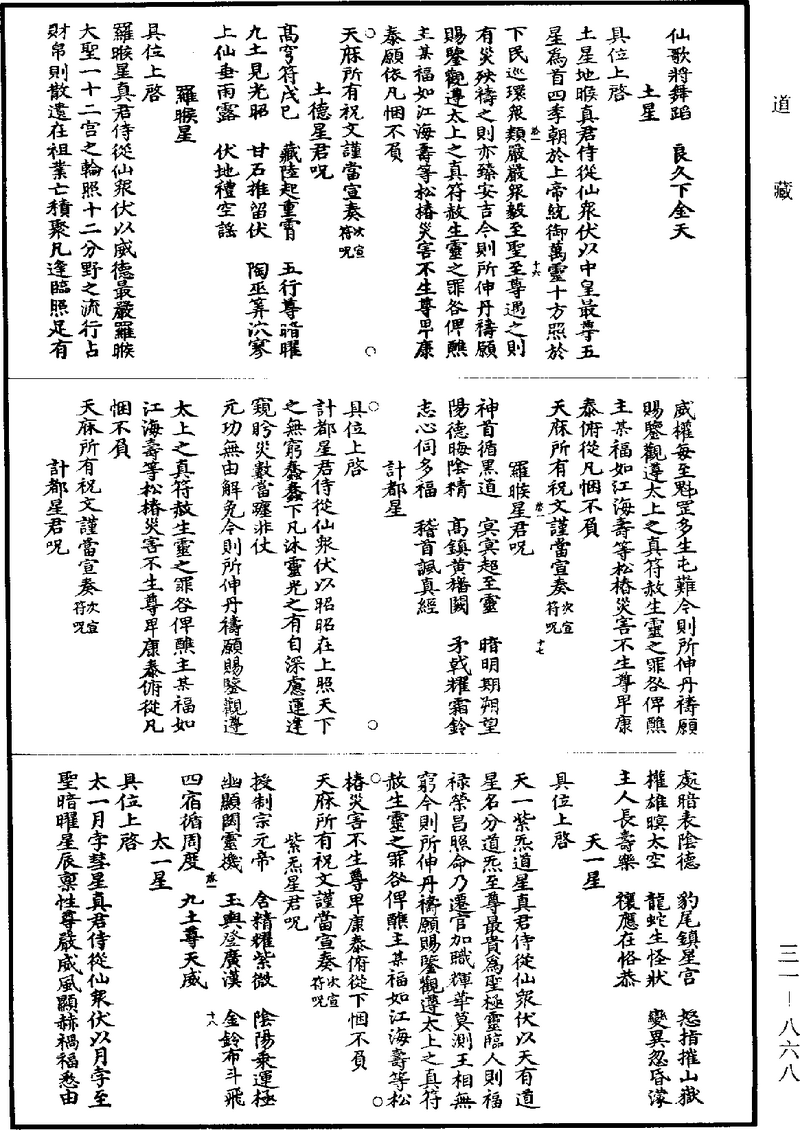 道藏
仙歌將舞蹈　良久下金天
土星
具位上啓
土星地睺真君侍從仙衆伏以中皇最尊五
星爲首四季朝於上帝統御萬靈十方照於
下民巡環衆類嚴嚴衆毅至聖至尊遇之則
有災殃禱之則亦臻安吉今則所伸丹禱願
賜鑒觀遵太上之真符赦生靈之罪各俾醮
主某福如江海壽等松椿災害不生尊卑康
泰願依凡悃不負
天庥所有祝文謹當宣奏次宣符呪
土德星君呪
高穹符戊巳　藏陸起重霄　五行尊暗曜
九土見光昭　甘石推留伏　陶巫筭泬寥
上仙垂雨露　伏地禮空謡
羅睺星
具位上啓
羅睺星真君侍從仙衆伏以威德最嚴羅睺
大聖一十二宫之輪照十二分野之流行占
財帛則散遺在祖業亡積聚凡逢臨照足有
威權每至魁罡多生屯難今則所伸丹禱願
賜鑒觀遵太上之真符赦生靈之罪咎俾醮
主某福如江海壽等松椿災害不生尊卑康
泰俯從凡悃不負
天庥所有祝文謹當宣奏次宣符呪
羅睺星君呪
神首循黑道　冥冥超至靈　暗明期朔望
陽德晦陰精　高鎮黄旛闕　矛戟耀霜鈴
志心伺多福　稽首諷真經
計都星
具位上啓
計都星君侍從仙衆伏以昭昭在上照天下
之無窮蠢蠢下凡沐靈光之有自深慮運逢
窺盻災數當躔非仗
元功無由解免今則所伸丹禱願賜鑒觀遵
太上之真符赦生靈之罪咎俾醮主某福如
江海壽等松椿災害不生尊卑康泰俯從凡
悃不負
天庥所有祝文謹當宣奏次宣符呪
計都星君呪
處暗表陰德　豹尾鎮星宫　怒指摧山嶽
權雄瞑太空　龍蛇生怪狀　變異忽昏濛
主人長壽樂　禳應在恪恭
天一星
具位上啓
天一紫炁道星真君侍從仙衆伏以天有道
星名分道炁至尊最貴爲聖極靈臨人則福
禄榮昌照命乃遷官加職輝華莫測王相無
窮今則所伸丹禱願賜鑒觀遵太上之真符
赦生靈之罪咎俾醮主某福如江海壽等松
椿災害不生尊卑康泰俯從下悃不負
天庥所有祝文謹當宣奏次宣符呪
紫炁星君呪
授制宗元帝　含精耀紫微　陰陽乘運極
幽顯闊靈機　玉輿登廣漢　金鈴布斗飛
四宿循周度　九土尊天威
太一星
具位上啓
太一月孛彗星真君侍從仙衆伏以月孛至
聖暗曜星辰禀性尊嚴威風顯赫禍福悉由
三一—八六八